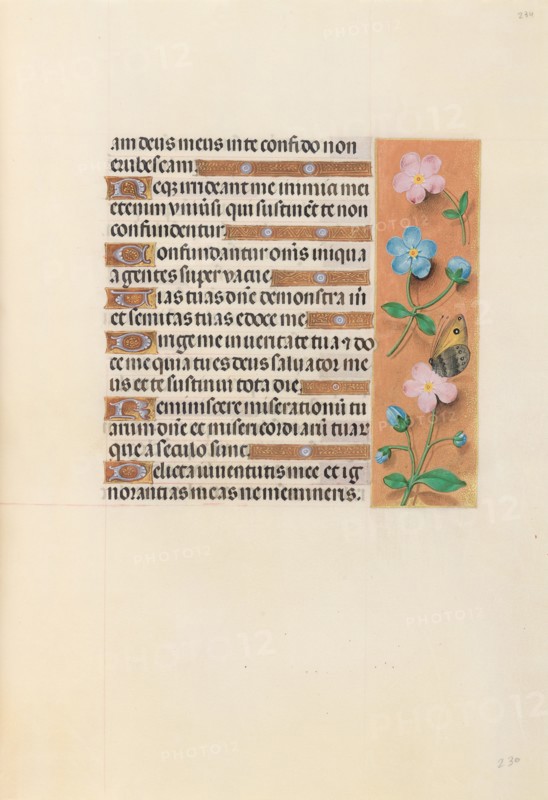 234
am deus meus in te confido non
erubescam
Neqz irrideant me inimici mei
etenim vniuersi qui sustinēt te non
confundentur
Confundantur om̄s iniqua
agentes super vacue
Uias tuas dn̄e demonstra m̄
et semitas tuas edoce me
Dirige me in ueritate tua ⁊ do
ce me quia tu es deus saluator me
us et te sustinui tota die
Reminiscere miserationū tu
arum dn̄e et misericordiarū tuar
que a seculo sunt
Delicta iuuentutis mee et ig
norantias meas ne memineris.
230
PHOTO12